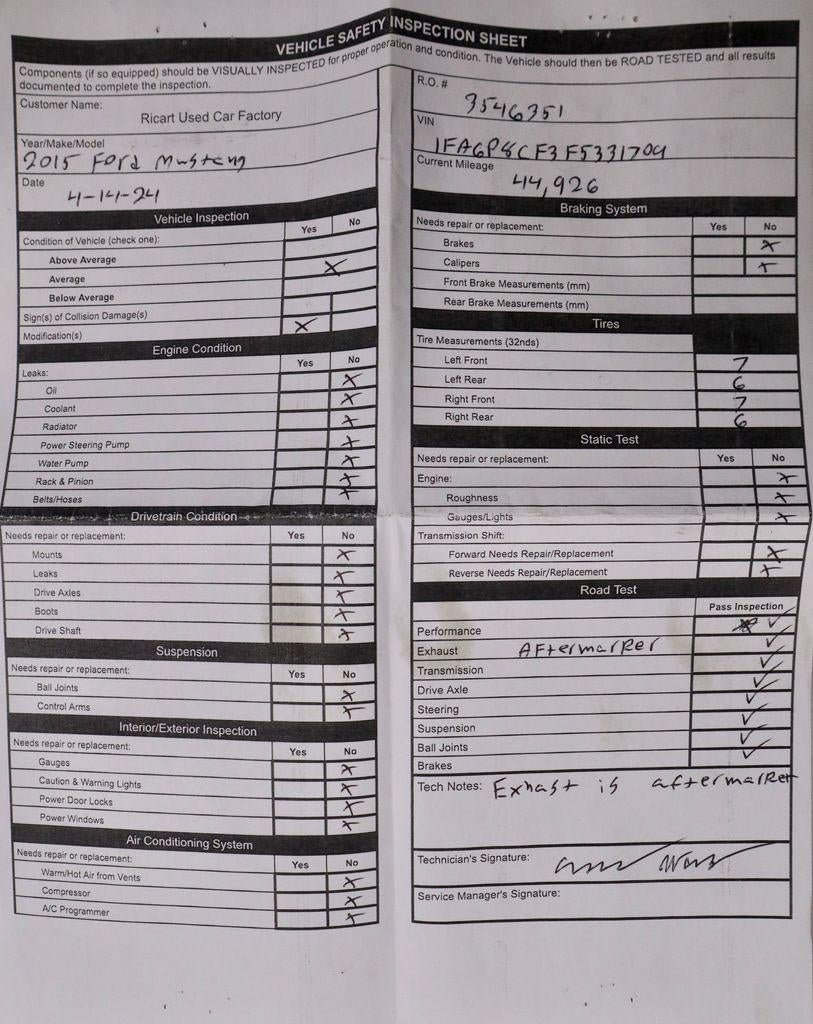 VEHICLE SAFETY INSPECTION SHEET
Components (if so equipped) should be VISUALLY INSPECTED for proper operation and condition. The Vehicle should then be ROAD TESTED and all results
documented to complete the inspection.
Customer Name:
Ricart Used Car Factory
Year/Make/Model
2015 Ford Mustang
Date
4-14-24
Vehicle Inspection
Yes No
Condition of Vehicle (check one):
Above Average
Average X
Below Average
Sign(s) of Collision Damage(s)
Modification(s) X
Engine Condition
Yes No
Leaks:
Oil X
Coolant X
Radiator X
Power Steering Pump X
Water Pump X
Rack & Pinion X
Belts/Hoses X
Drivetrain Condition
Needs repair or replacement: Yes No
Mounts X
Leaks X
Drive Axles X
Boots X
Drive Shaft X
Suspension
Needs repair or replacement: Yes No
Ball Joints X
Control Arms X
Interior/Exterior Inspection
Needs repair or replacement: Yes No
Gauges X
Caution & Warning Lights X
Power Door Locks X
Power Windows X
Air Conditioning System
Needs repair or replacement: Yes No
Warm/Hot Air from Vents X
Compressor X
A/C Programmer X
R.O. #
3546351
VIN
1FA6P8CF3F5331709
Current Mileage
44,926
Braking System
Needs repair or replacement: Yes No
Brakes X
Calipers X
Front Brake Measurements (mm)
Rear Brake Measurements (mm)
Tires
Tire Measurements (32nds)
Left Front 7
Left Rear 6
Right Front 7
Right Rear 6
Static Test
Needs repair or replacement: Yes No
Engine: X
Roughness X
Gauges/Lights X
Transmission Shift:
Forward Needs Repair/Replacement X
Reverse Needs Repair/Replacement X
Road Test
Pass Inspection
Performance ✓
Exhaust Aftermarket ✓
Transmission ✓
Drive Axle ✓
Steering ✓
Suspension ✓
Ball Joints ✓
Brakes ✓
Tech Notes: Exhast is aftermarket
Technician's Signature:
Service Manager's Signature: